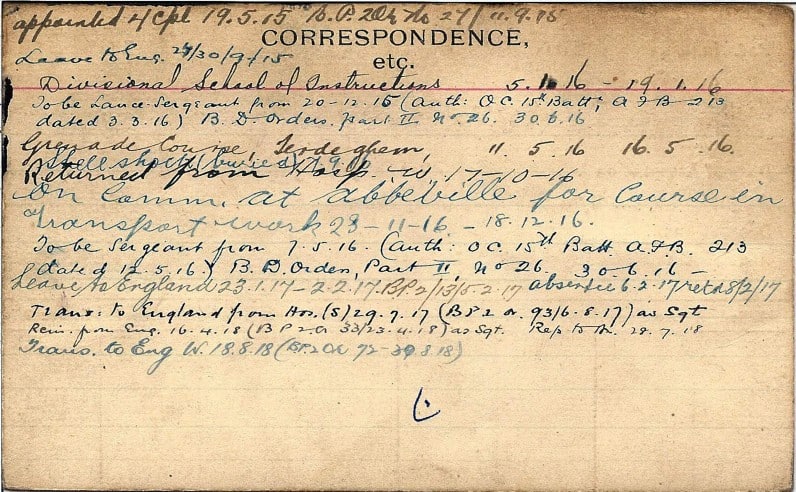 appointed L/Cpl 19.5.15 B.P. 2 Or No 27/11.9.15
CORRESPONDENCE,
etc.
Leave to Eng. 24/30/9/15
Divisional School of Instructions 5.1.16 - 19.1.16
To be Lance-Sergeant from 20-12-15 (Auth: O.C. 15th Batt; A.F.B. 213
dated 3.3.16) B.D. Orders, part II No 26. 30.6.16
Grenade Course, Terdeghem, 11 5.16 16.5.16.
Shell shock (buried)
Returned from Hosp. W. 17-10-16
On Comm. at Abbeville for Course in
Transport work 28-11-16 - 18.12.16.
To be Sergeant from 7.5.16. (Auth: O.C. 15th Batt. A.F.B. 213
dated 12.5.16.) B.D. Orders, Part II, No 26. 30.6.16 -
Leave to England 23.1.17 - 2.2.17. B.P. 2/13/5.2.17 absentee 6.2.17 retd 8/2/17
Trans: to England from Hos. (S) 29.7.17 (B P 2 Or. 93/6.8.17) as Sgt
Rein. from Eng. 16.4.18 (B P 2 Or 33/23.4.18) as Sgt. Rep to Un. 28.7.18
Trans. to Eng W. 18.8.18 (B.P. 2 Or 72-30.8.18)